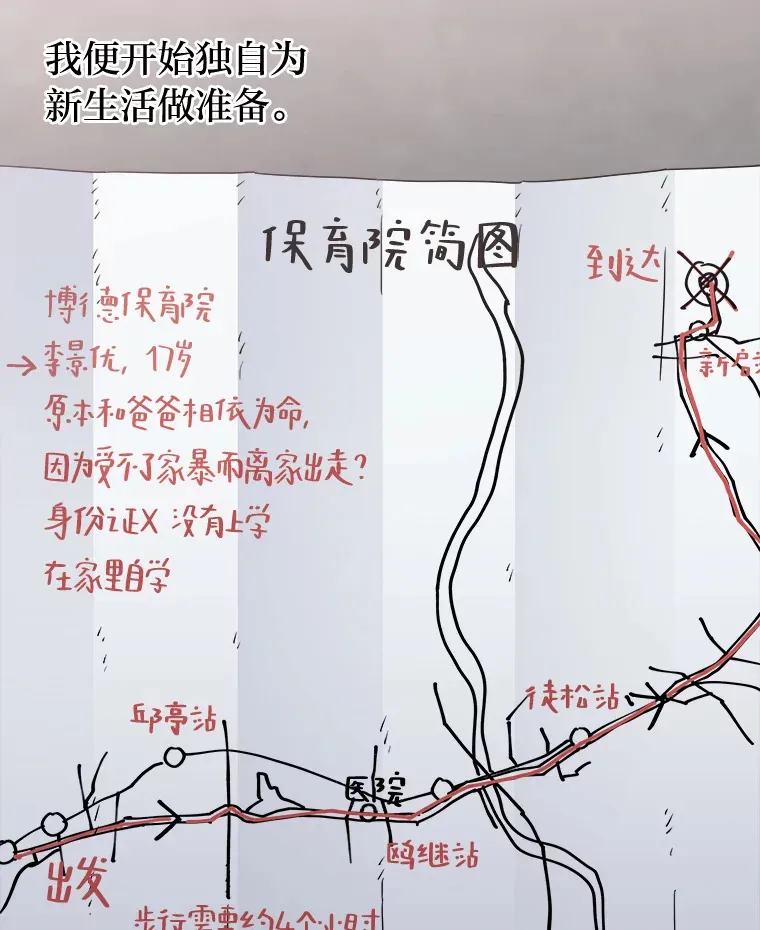 我便开始独自为
新生活做准备。
保育院简图
到达
博德保育院
→李景优, 17岁
原本和爸爸相依为命,
因为受不了家暴而离家出走?
身份证X 没有上学
在家里自学
新启
徒松站
邱亭站
医院
鸥继站
出发
步行需要约4个小时